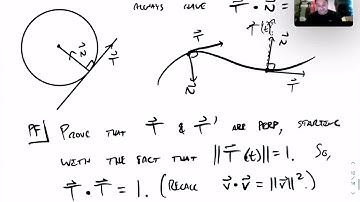 ALWAYS HAVE T⃗ · N⃗ =
T⃗'(t)
T⃗
N⃗
T⃗
N⃗
T⃗
PF PROVE THAT T⃗ & T⃗' ARE PERP, STARTING
WITH THE FACT THAT ||T⃗(t)|| = 1. SO,
T⃗ · T⃗ = 1. (RECALL v⃗ · v⃗ = ||v⃗||².)